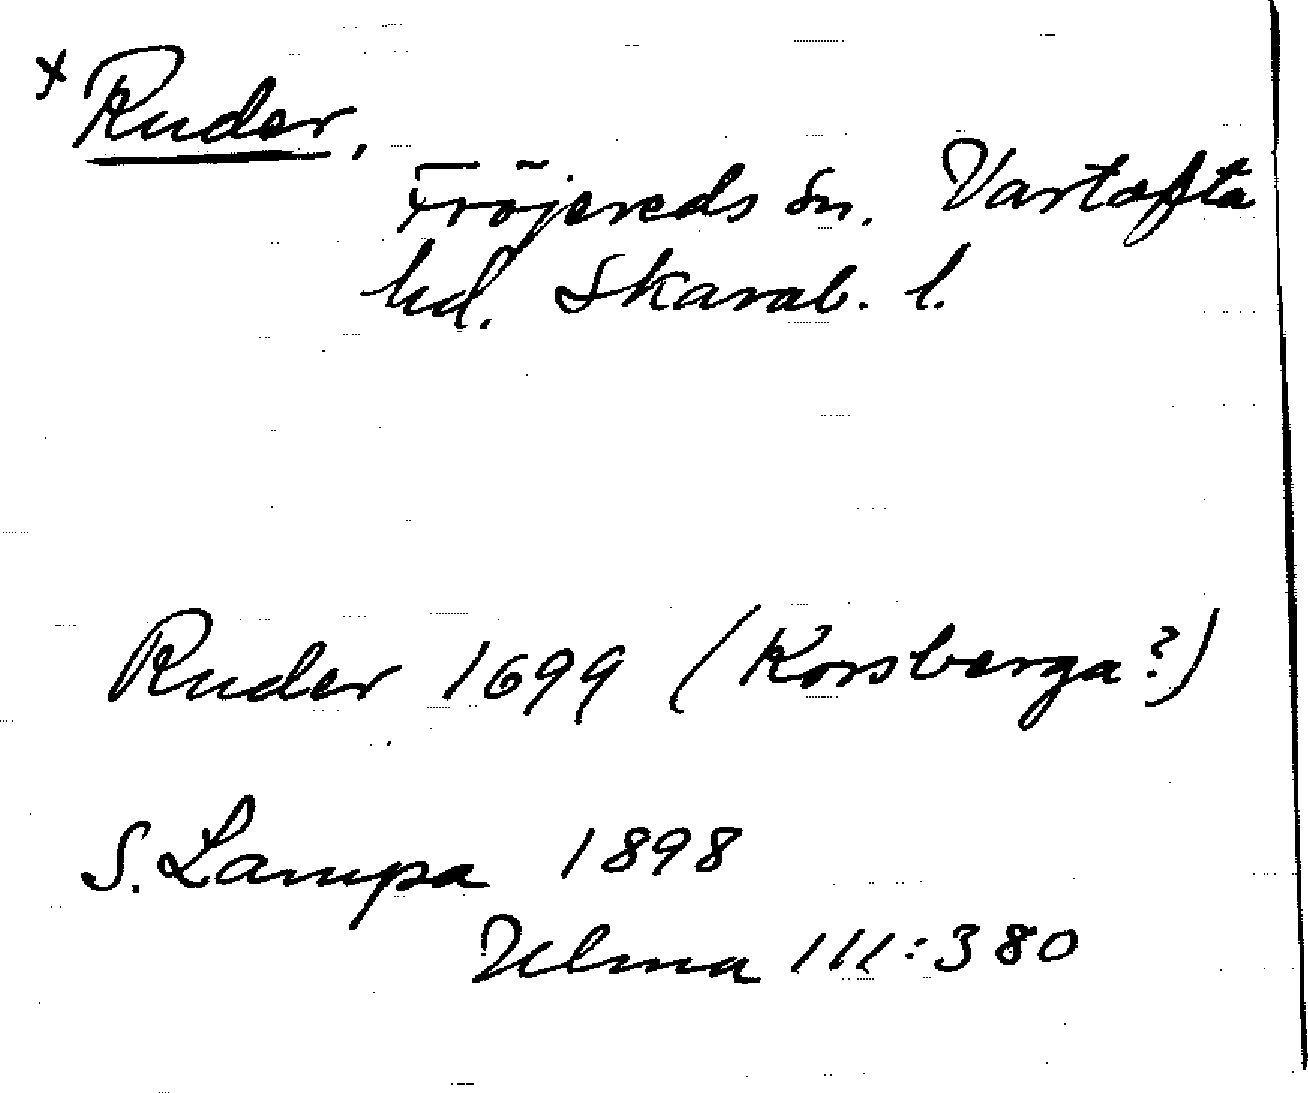 x Ruder,
Fröjereds sn. Vartofta
hd. Skarab. l.
Ruder 1699 (Korsberga?)
S. Lampa 1898
Ulma 111:380